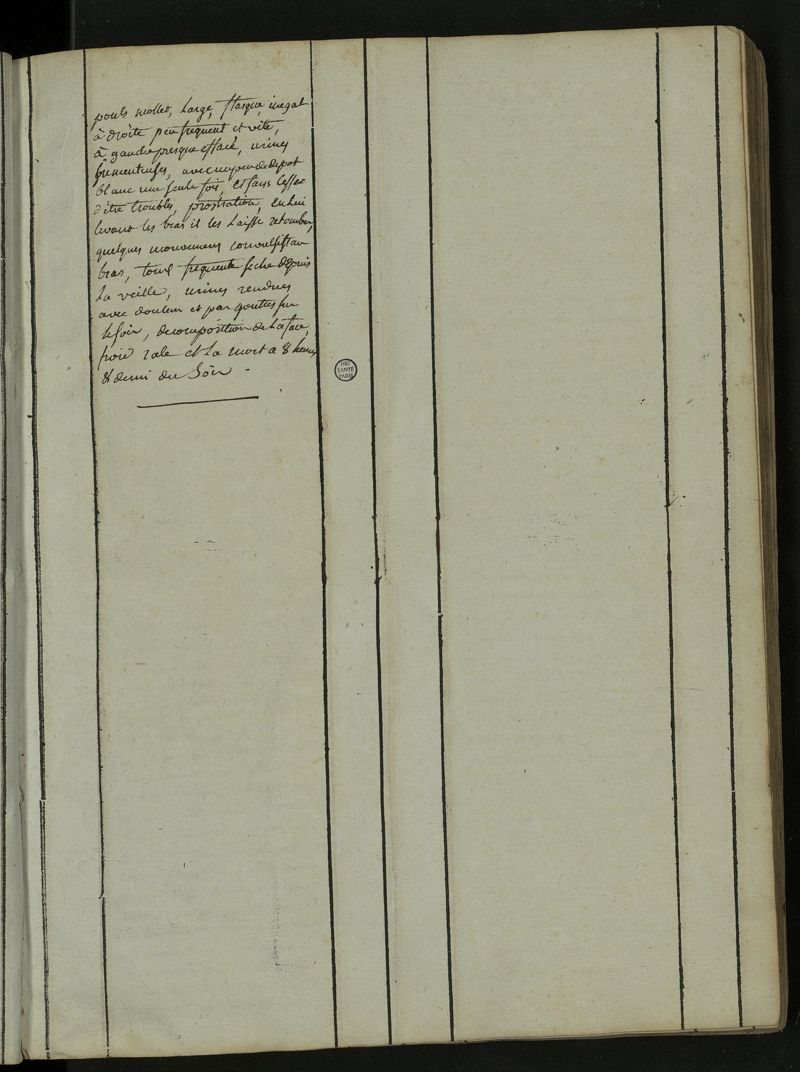 pouls mollet, large, flasque, inegal
à droite peu frequent et vite,
à gauche presque effacé, urines
jumenteuses, avec un peu de depot
blanc une seule fois, et sans cesser
d'être troubles, prostration, en lui
levant les bras il les laisse retomber,
quelques mouvemens convulsifs au
bras, toux frequente seche depuis
la veille, urines rendues
avec douleur et par gouttes sur
le soir, decomposition de la face,
froid rale et la mort a 8 heures
& demi du soir.
BIU
SANTÉ
PARIS